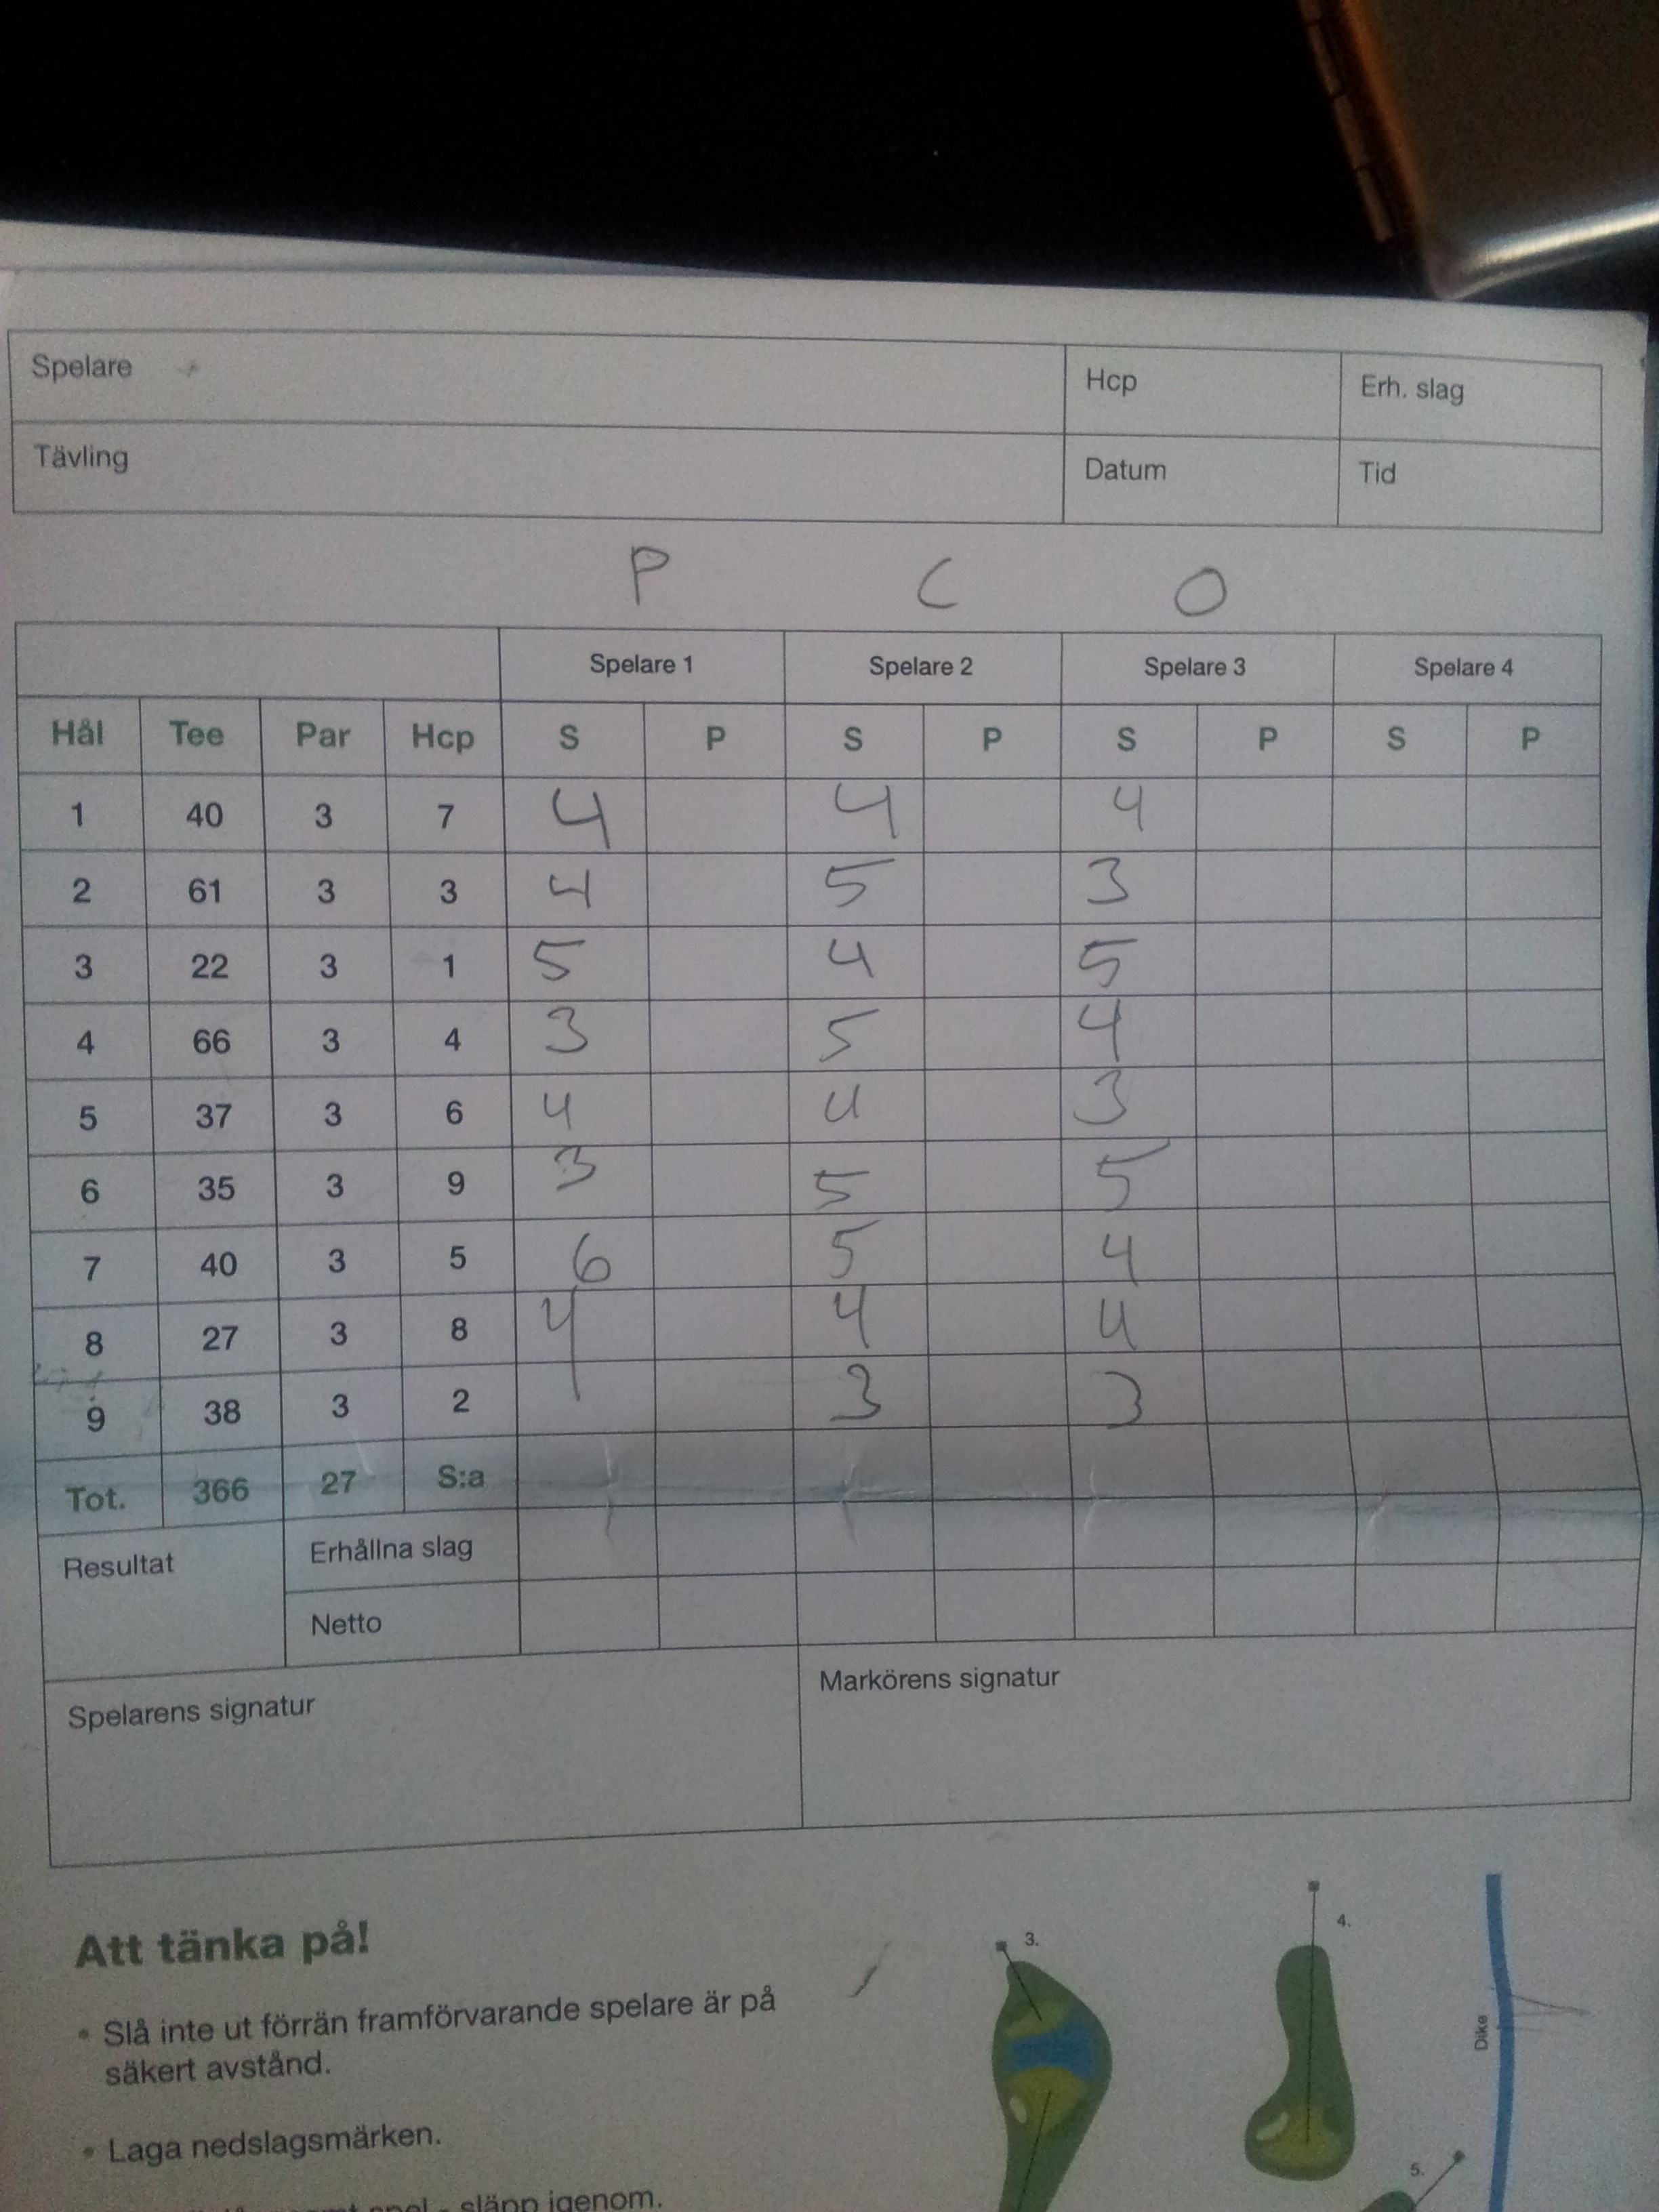 Spelare Hcp Erh. slag
Tävling Datum Tid
P C O
Spelare 1 Spelare 2 Spelare 3 Spelare 4
Hål Tee Par Hcp S P S P S P S P
1 40 3 7 4 4 4
2 61 3 3 4 5 3
3 22 3 1 5 4 5
4 66 3 4 3 5 4
5 37 3 6 4 4 3
6 35 3 9 3 5 5
7 40 3 5 6 5 4
8 27 3 8 4 4 4
9 38 3 2 3 3
Tot. 366 27 S:a
Resultat Erhållna slag
Netto
Spelarens signatur Markörens signatur
Att tänka på!
• Slå inte ut förrän framförvarande spelare är på
säkert avstånd.
• Laga nedslagsmärken.
spel - släpp igenom.
3.
4.
Dike
5.